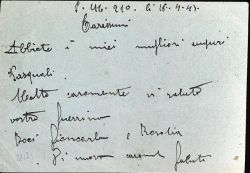 P. M. 210. li 15.4.43.
Carissimi
Abbiate i miei migliori auguri
Pasquali.
Molto caramente vi saluto
vostro Guerrino
Baci Giancarlo e Rosalia
Di nuovo saluti